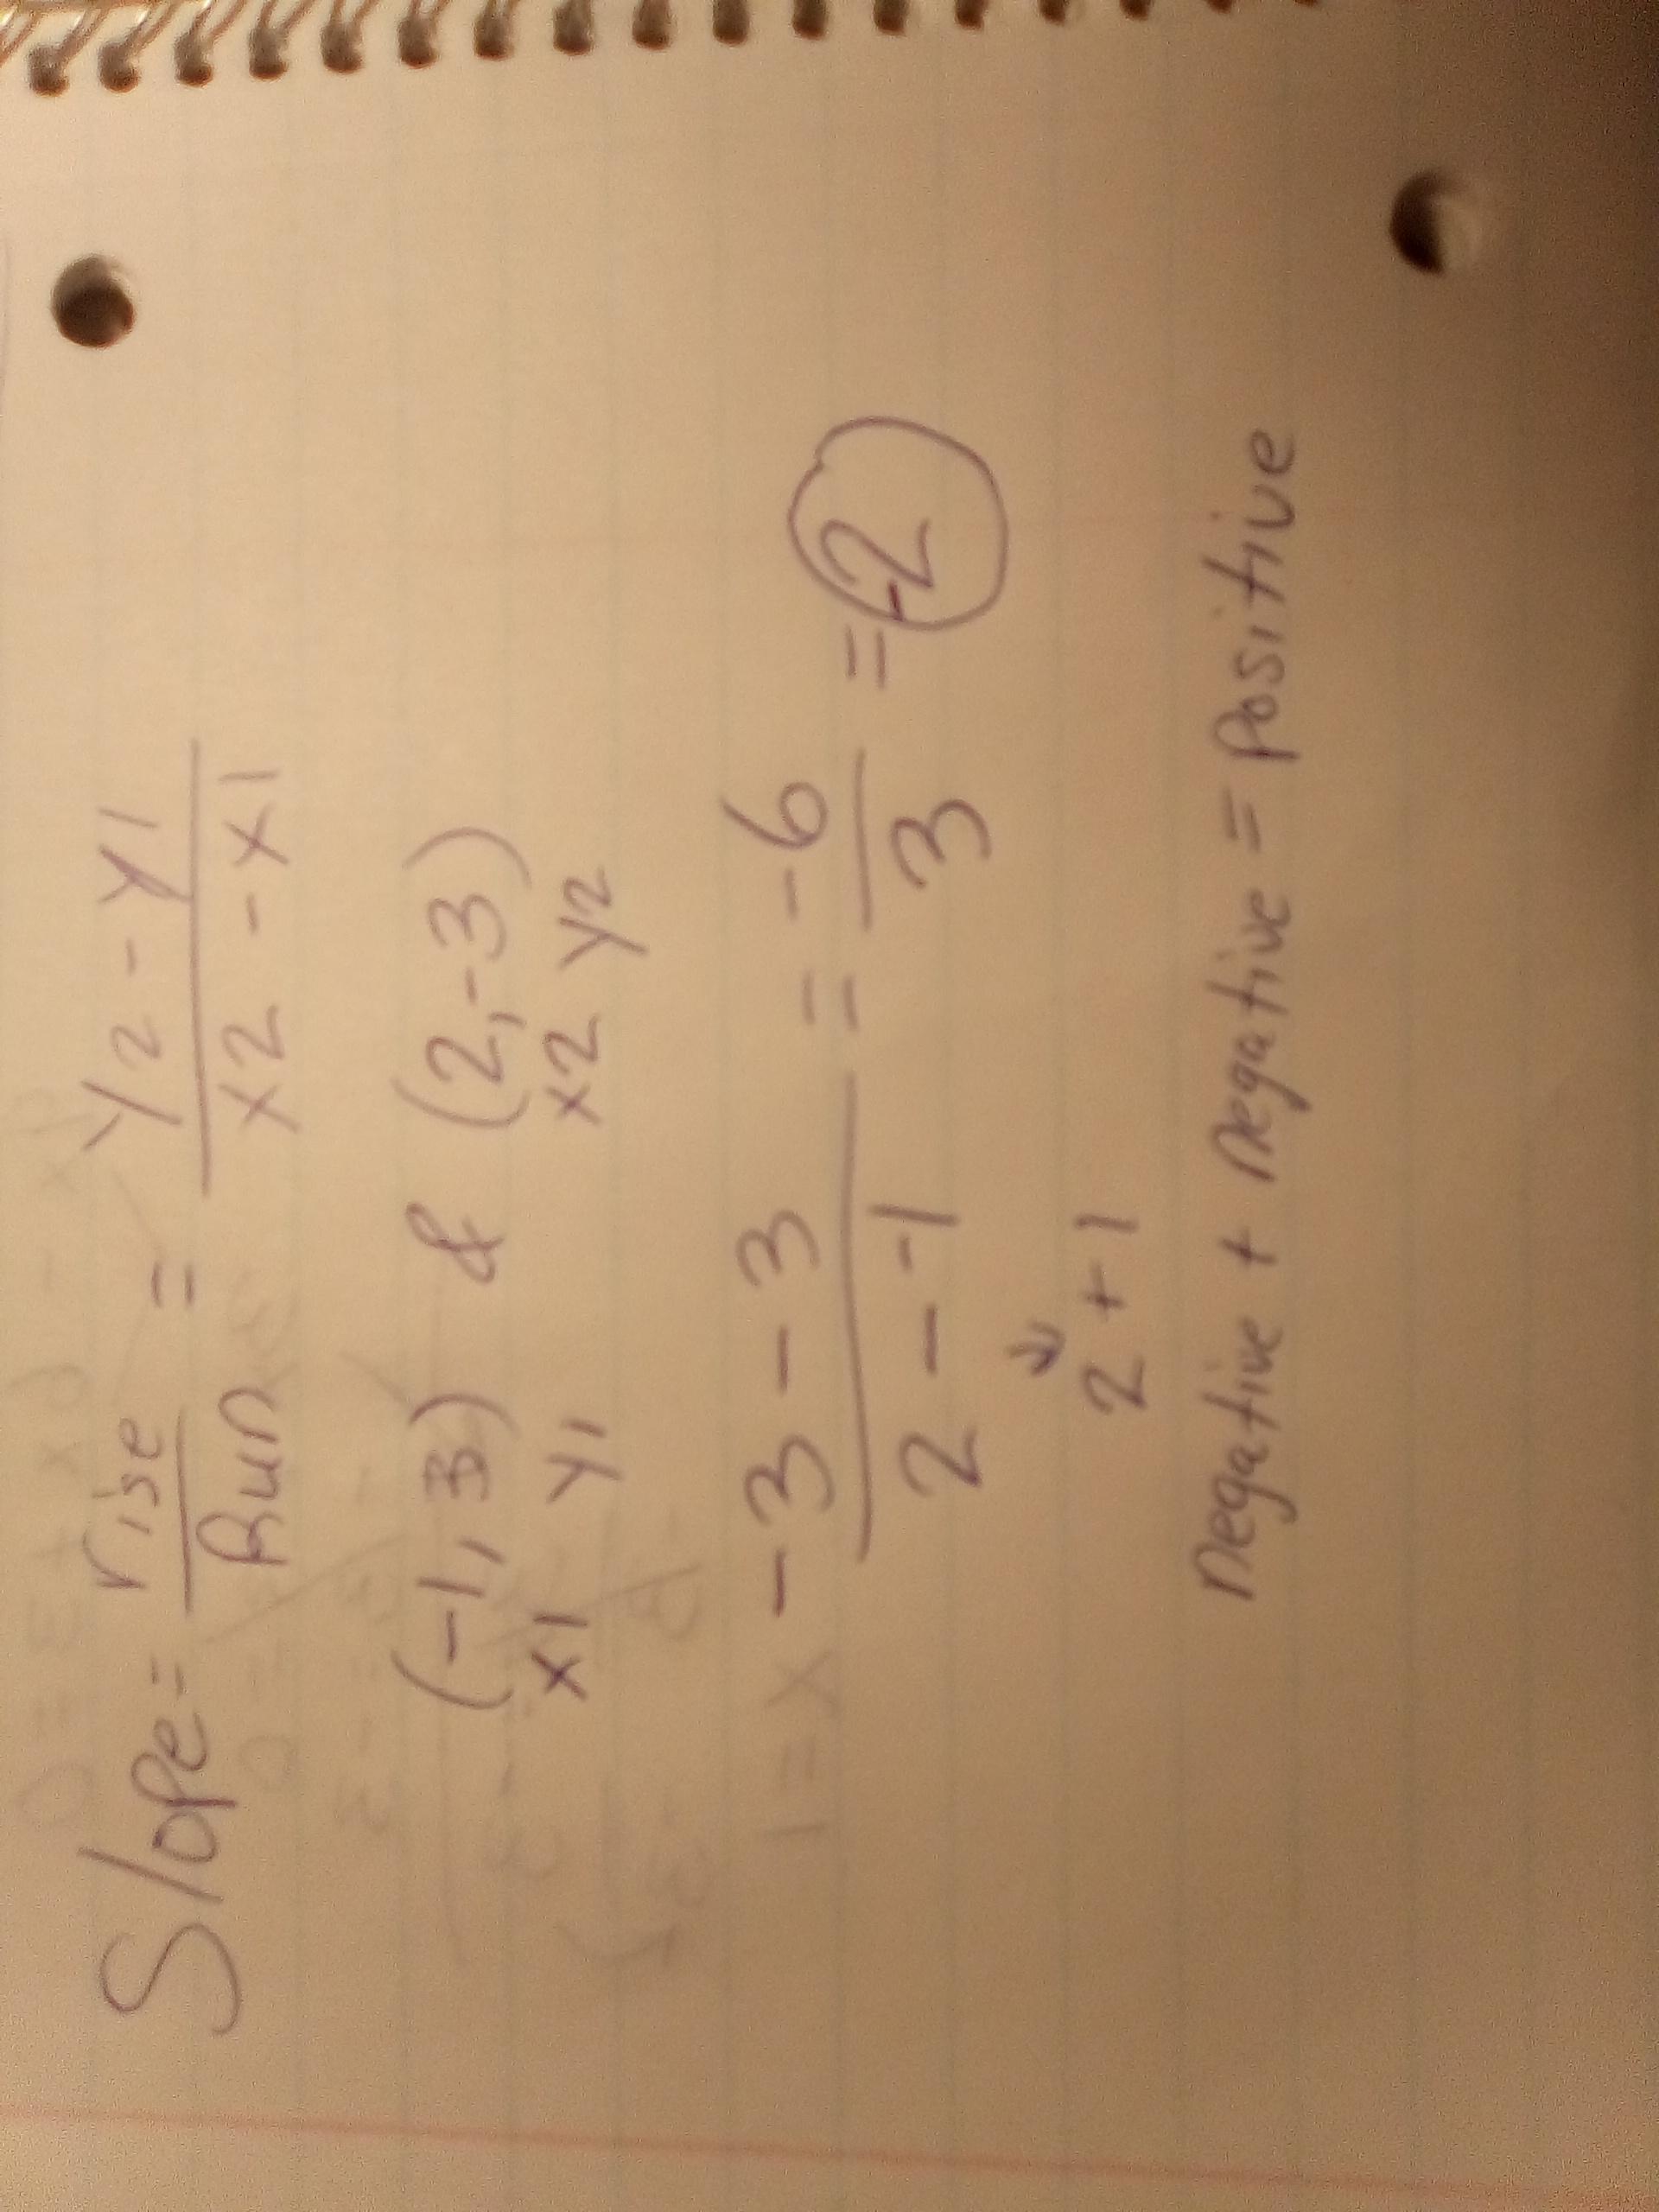 Slope = rise/Run = y2 - y1/x2 - x1
(-1, 3) & (2, -3)
x1 y1 x2 y2
-3 - 3/2 - -1 = -6/3 = -2
2 + 1
negative + negative = positive